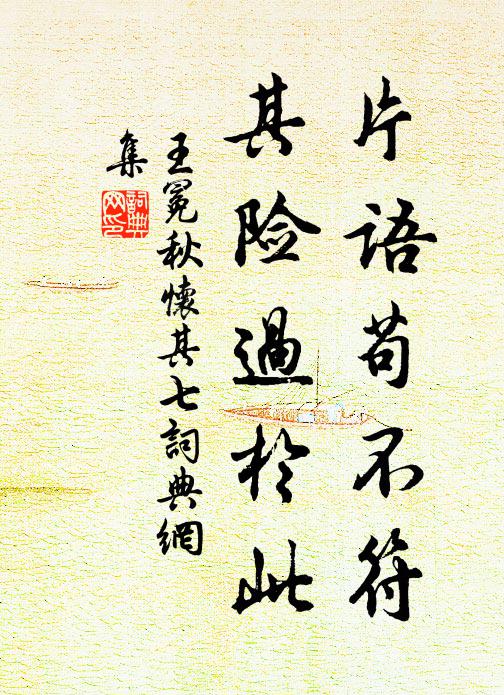 片语苟不符
其险过於此
王冕秋懷其七詞典網
集
詞典
网印